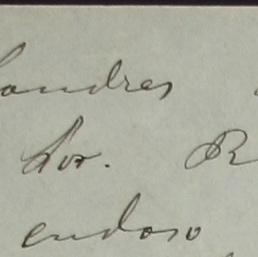 Londres
Sor. R
endoso